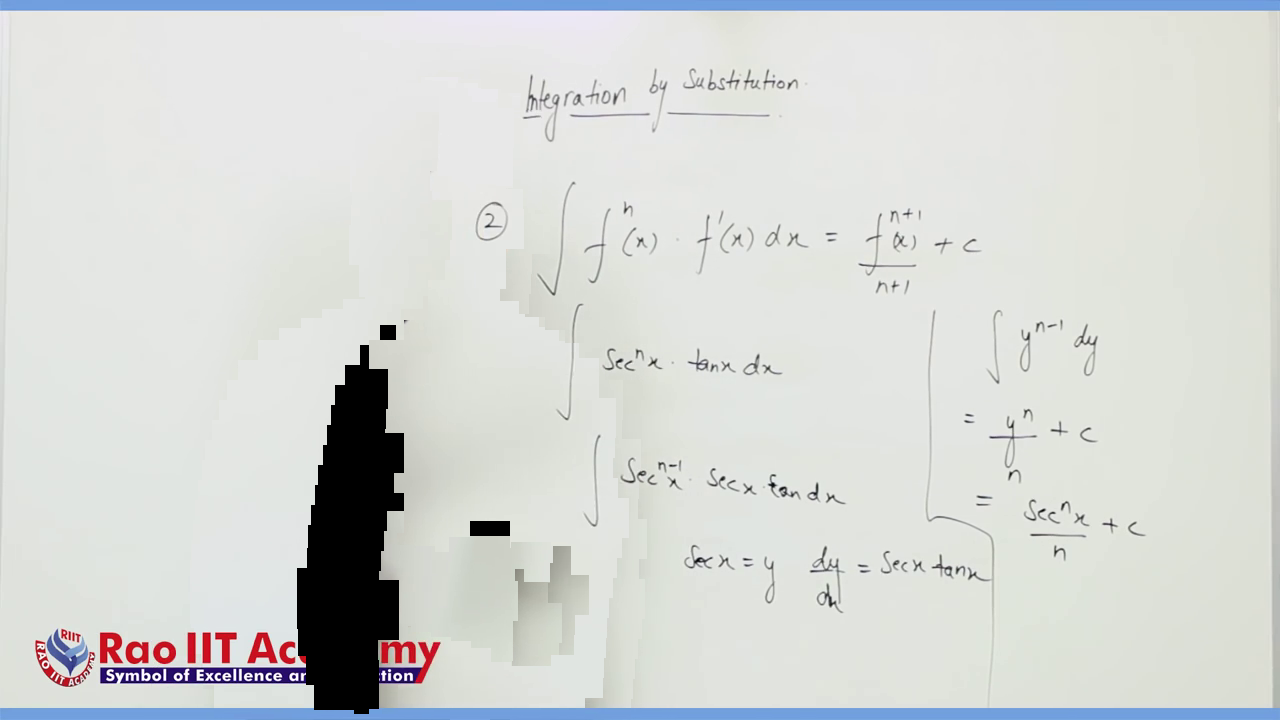 Integration by Substitution.
2 ∫ fⁿ(x) · f'(x) dx = fⁿ⁺¹(x)/n+1 + c
∫ Secⁿx · tanx dx
∫ Secⁿ⁻¹x · Secx · tan dx
Secx = y dy/dx = Secx tanx
∫ yⁿ⁻¹ dy
= yⁿ/n + c
= Secⁿx/n + c
RIIT
RAO IIT ACADEMY
Rao IIT Ac my
Symbol of Excellence an ction